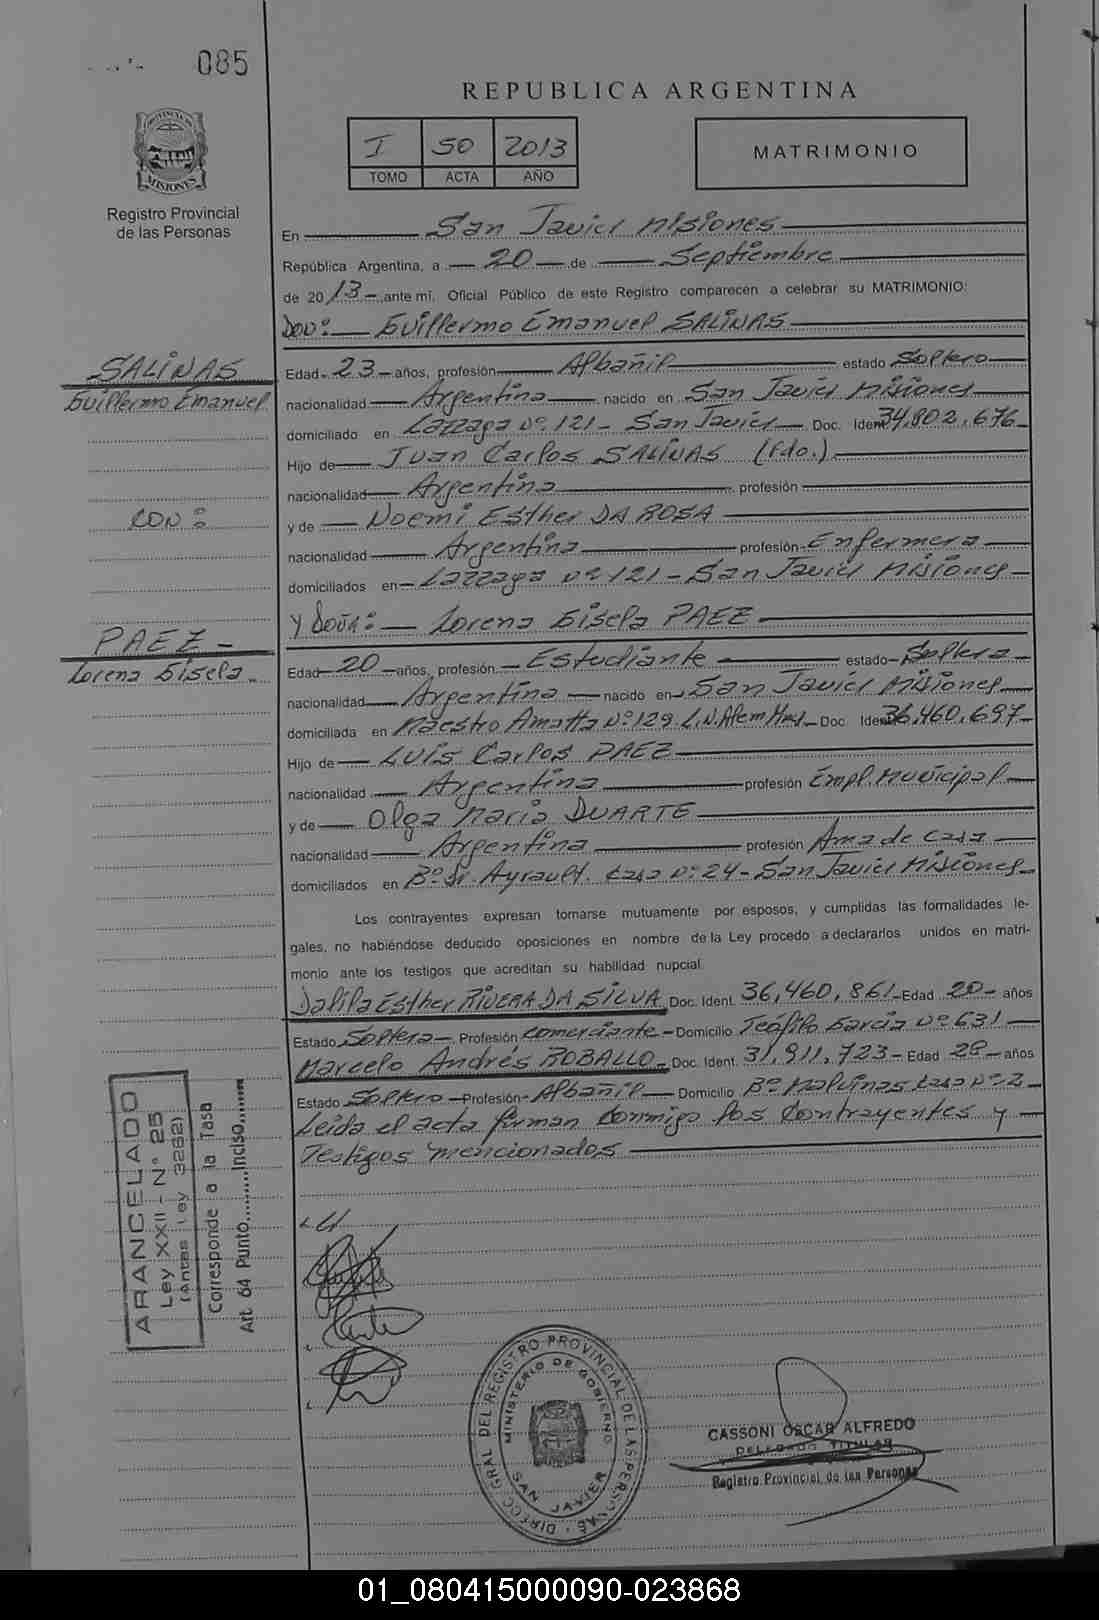 085
REPUBLICA ARGENTINA
I 50 2013
TOMO ACTA AÑO
MATRIMONIO
PROVINCIA DE MISIONES
Registro Provincial
de las Personas
En San Javier Misiones
República Argentina, a 20 de Septiembre
de 2013 ante mí, Oficial Público de este Registro comparecen a celebrar su MATRIMONIO:
Don: Guillermo Emanuel SALINAS
SALINAS
Guillermo Emanuel
CON:
PAEZ
Lorena Gisela
Edad 23 años, profesión Albañil estado Soltero
nacionalidad Argentina nacido en San Javier Misiones
domiciliado en Lazzaga Nº 121 - San Javier Doc. Ident. 34.802.676
Hijo de Juan Carlos SALINAS (fdo.)
nacionalidad Argentina profesión
y de Noemi Esther DA ROSA
nacionalidad Argentina profesión Enfermera
domiciliados en Lazzaga Nº 121 - San Javier Misiones
Y Doña: Lorena Gisela PAEZ
Edad 20 años, profesión Estudiante estado Soltera
nacionalidad Argentina nacido en San Javier Misiones
domiciliada en Maestro Amatta Nº 129. L.N. Alem Mnes Doc. Ident. 36.460.697
Hijo de Luis Carlos PAEZ
nacionalidad Argentina profesión Empl. Municipal
y de Olga Maria DUARTE
nacionalidad Argentina profesión Ama de casa
domiciliados en Bº Sr. Ayrault. Casa Nº 24 - San Javier Misiones
Los contrayentes expresan tomarse mutuamente por esposos, y cumplidas las formalidades le-
gales, no habiéndose deducido oposiciones en nombre de la Ley procedo a declararlos unidos en matri-
monio ante los testigos que acreditan su habilidad nupcial
Dalila Esther RIVERA DA SILVA Doc. Ident. 36,460,861 Edad 20 años
Estado Soltera Profesión Comerciante Domicilio Teófilo Garcia Nº 631
Marcelo Andrés ROBALLO Doc. Ident. 31,911,723 Edad 28 años
Estado Soltero Profesión Albañil Domicilio Bº Malvinas Casa Nº 2
Leida el acta firman Conmigo los Contrayentes y
Testigos mencionados
ARANCELADO
Ley XXII - Nº 25
(Antes Ley 3262)
Corresponde a la Tasa
Art. 64 Punto.........Inciso.........
DIRECC. GRAL. DEL REGISTRO PROVINCIAL DE LAS PERSONAS
MINISTERIO DE GOBIERNO
SAN JAVIER
CASSONI OSCAR ALFREDO
DELEGADO TITULAR
Registro Provincial de las Personas
01_080415000090-023868